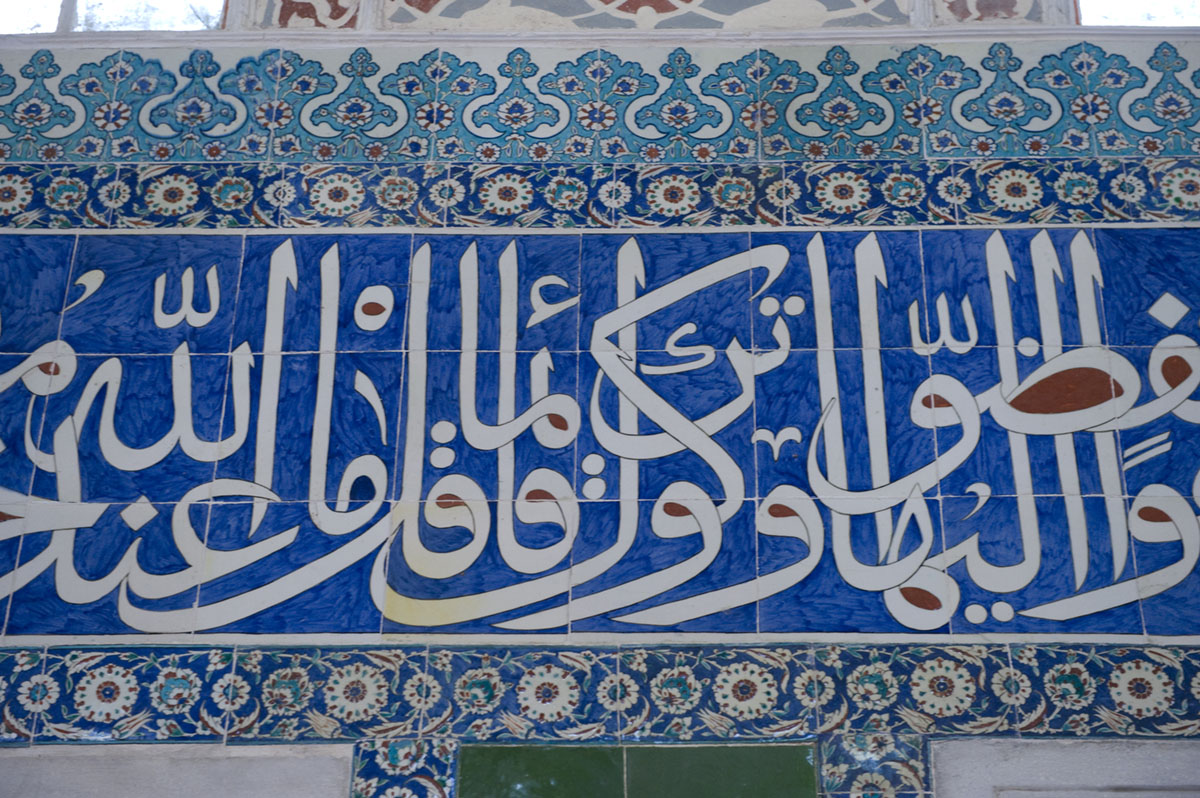 وًا انفضوا اليها وتركوك قائما قل ما عند الله